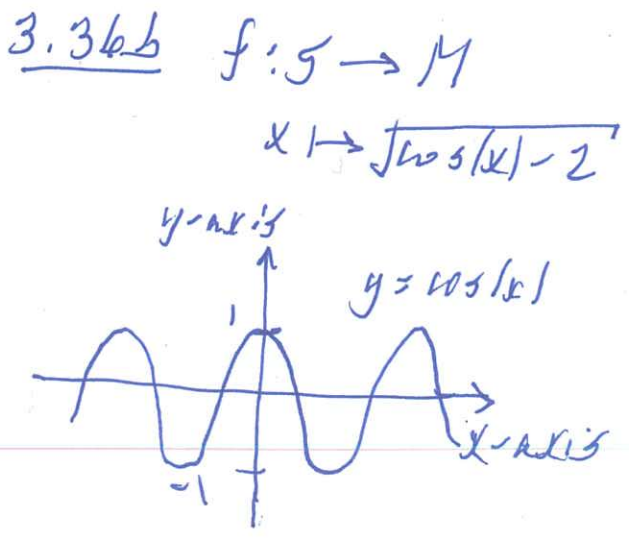 3.36b f: S → M
x ↦ √cos(x) - 2
y-axis
y = cos(x)
1
x-axis
-1